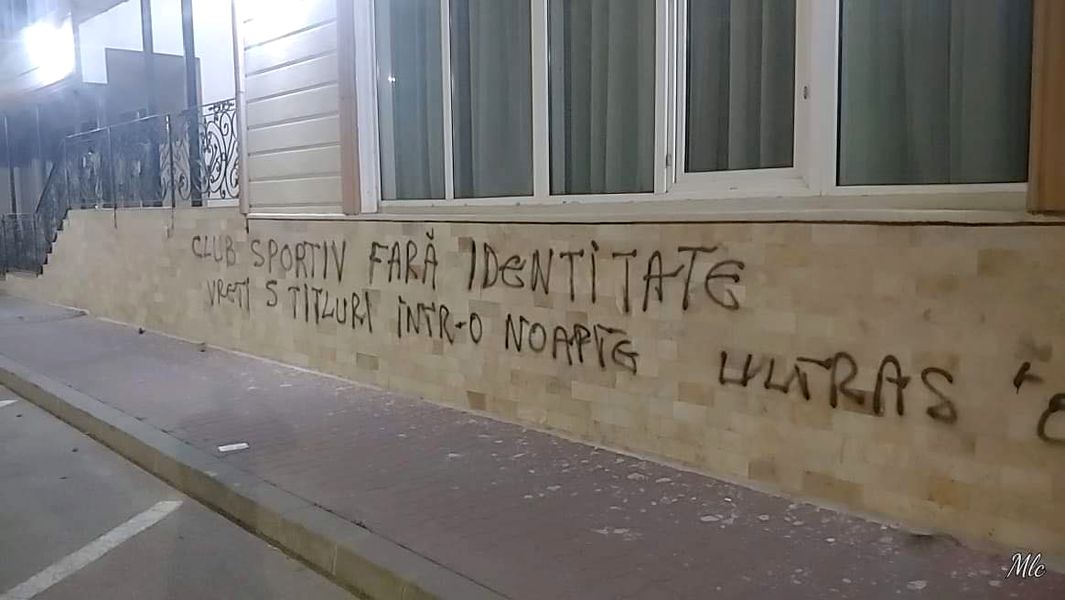 CLUB SPORTIV FARĂ IDENTITATE
VREȚI 5 TITLURI ÎNTR-O NOAPTE
ULTRAS
Mlc